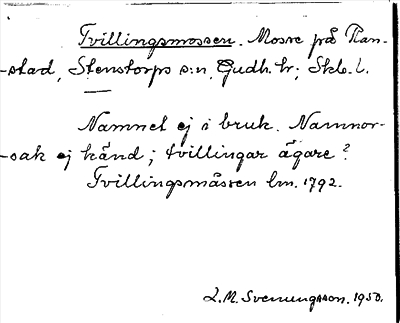 Tvillingsmossen. Mosse på Plan-
-stad, Stenstorps s:n, Gudh. hr; Skb. l.
Namnet ej i bruk. Namnor-
-sak ej känd; tvillingar ägare?
Tvillingsmåssen lm. 1792.
L.M. Svenungsson. 1950.